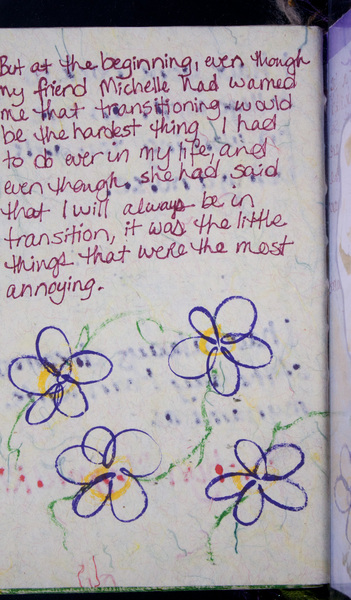 But at the beginning, even though
my friend Michelle had warned
me that transitioning would
be the hardest thing I had
to do ever in my life, and
even though she had said
that I will always be in
transition, it was the little
things that were the most
annoying.